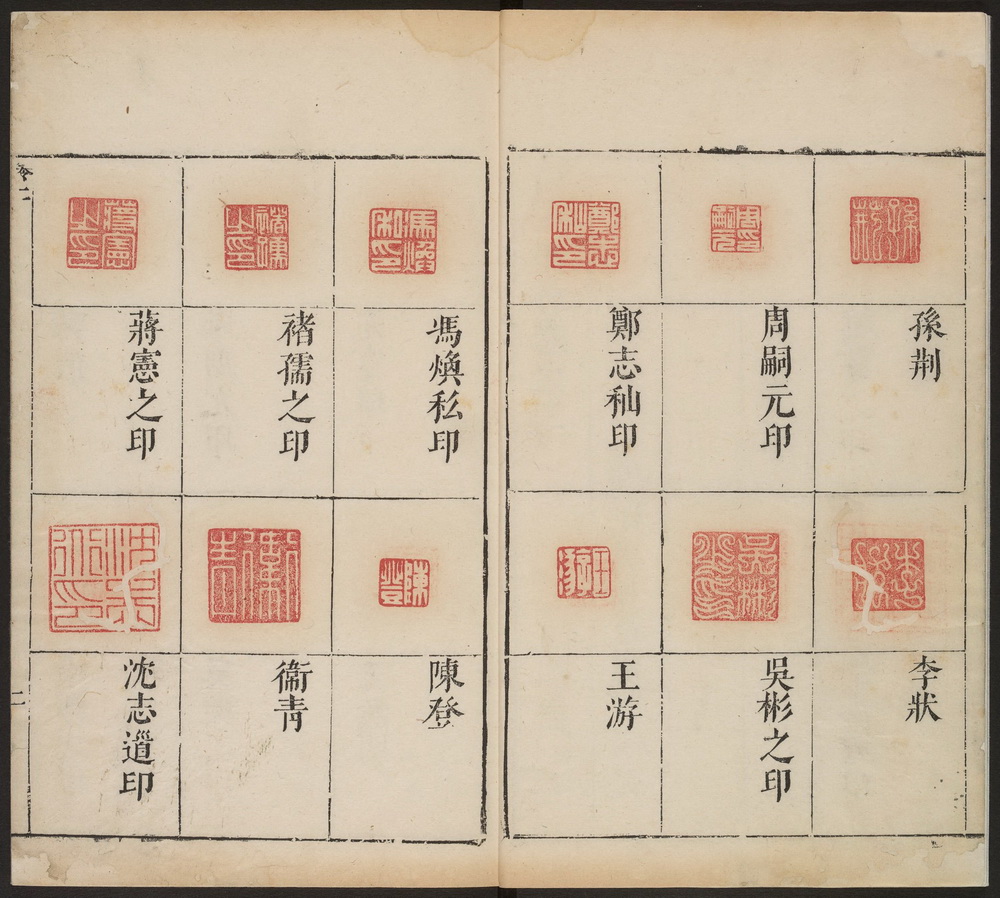 孫荆
周嗣元印
鄭志秈印
李狀
吳彬之印
王游
馮煥私印
褚孺之印
蔣憲之印
陳登
衞青
沈志道印
卷二
二